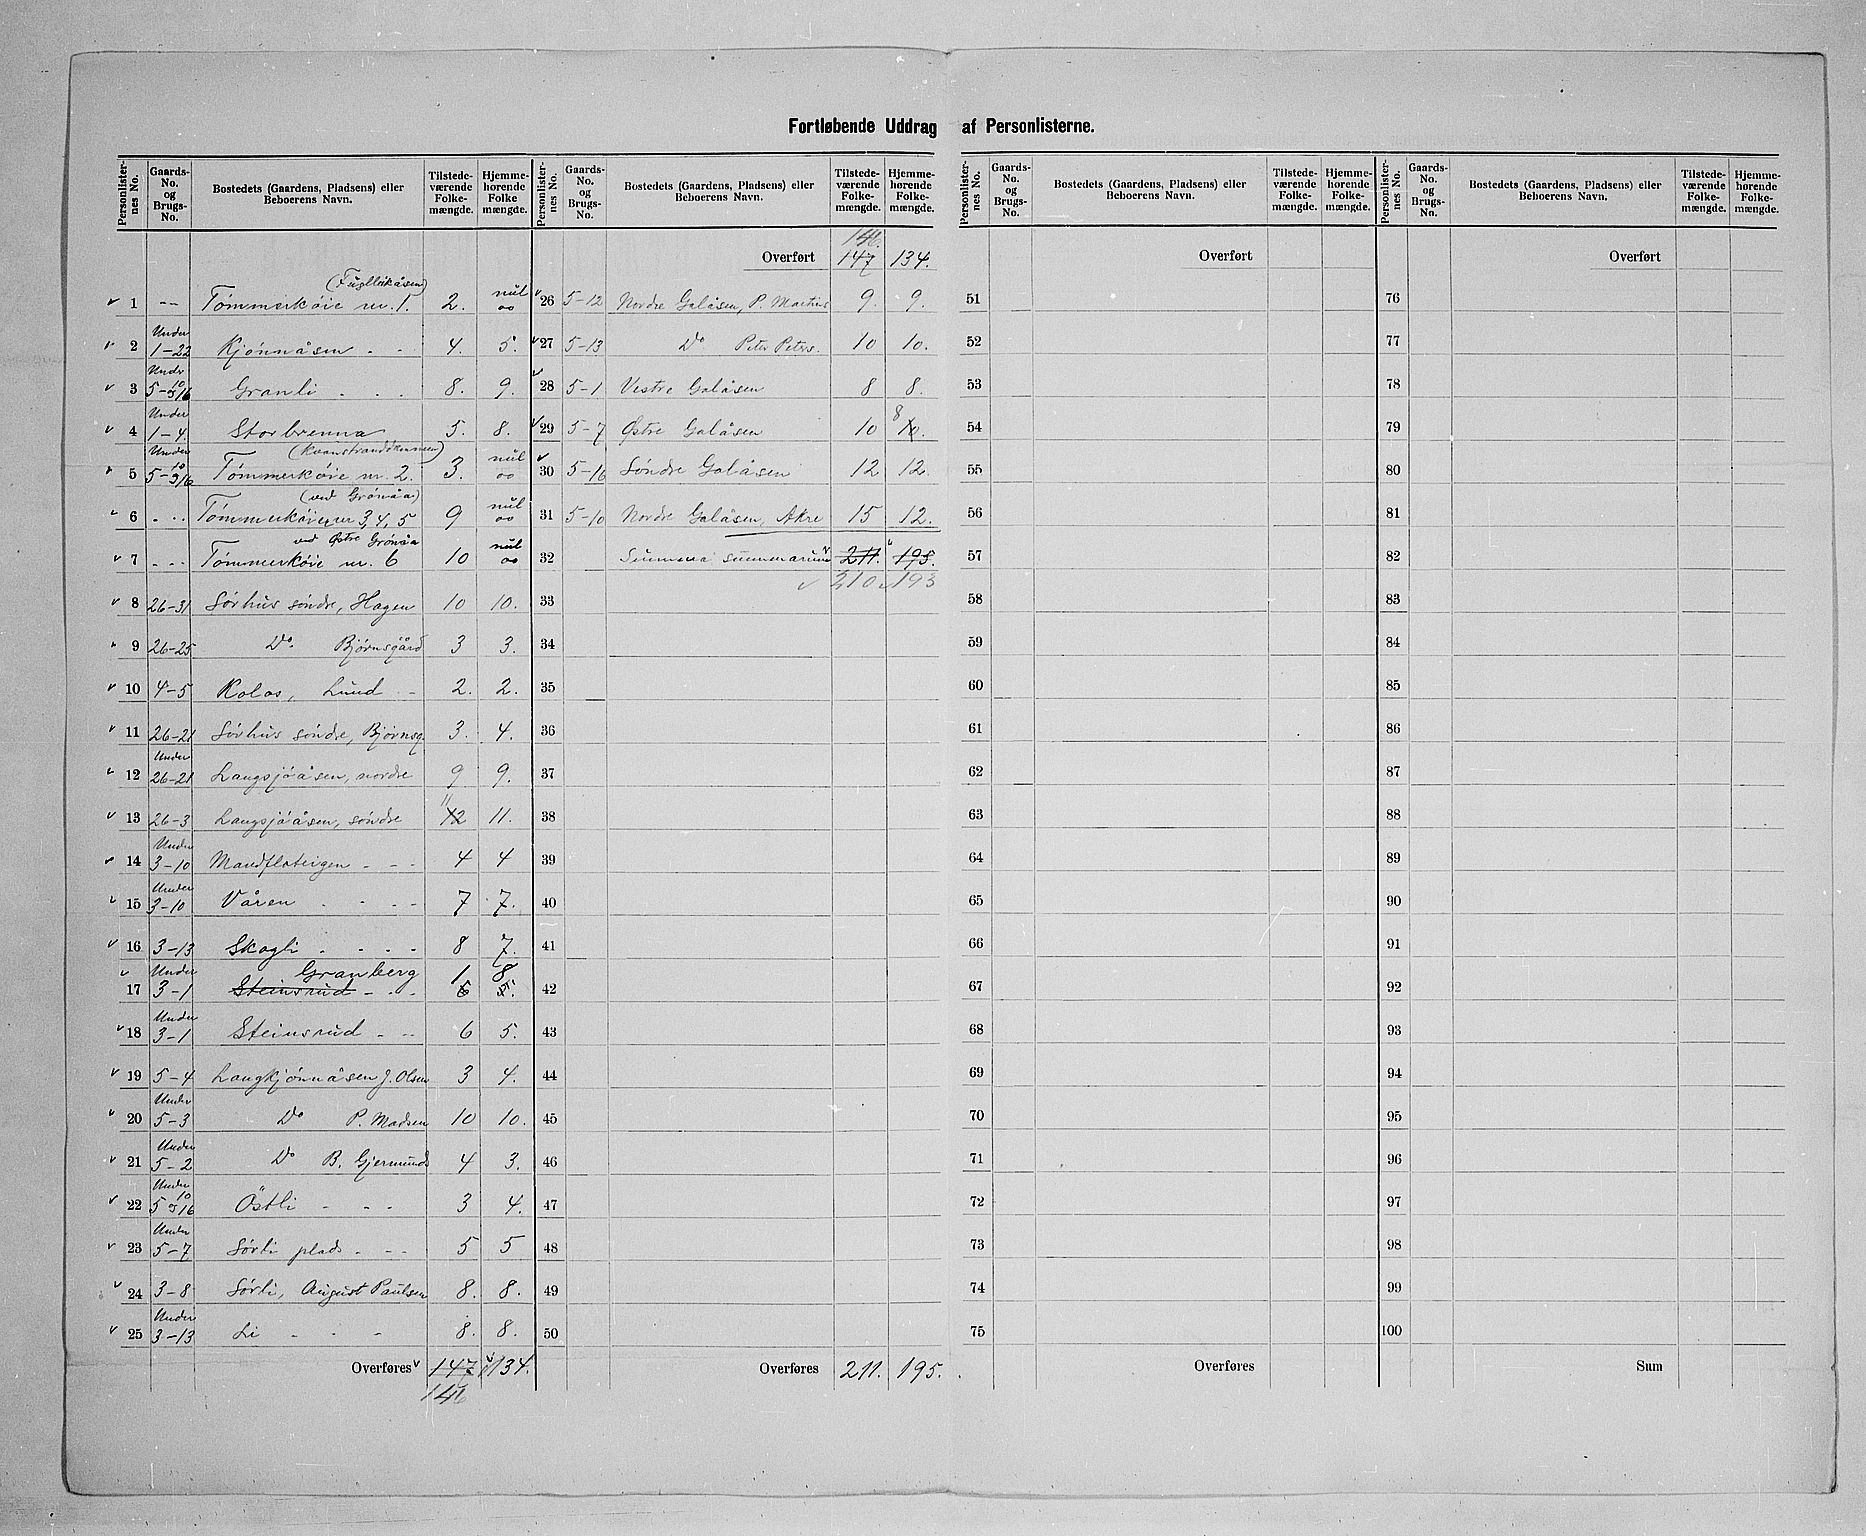 Fortløbende Uddrag af Personlisterne.
Personlister-nes No. Gaards-No. og Brugs-No. Bostedets (Gaardens, Pladsens) eller Beboerens Navn. Tilstede-værende Folke-mængde. Hjemme-hørende Folke mængde.
1 -- Tømmerkøie nr. 1. 2. nul oo
Under
2 1-22 Kjønnåsen - - 4. 5.
Under
3 5-10 og 16 Granli - - - 8. 9.
Under
4 1-4. Storbrenna 5. 8.
Under
5 5-10 og 16 Tømmerkøie nr. 2. 3. nul oo
(ved Grönåa)
6 - - - Tømmerkøie nr 3, 4, 5 9 nul oo
ved Østre Grönåa
7 - - - Tømmerkøie nr. 6 10 nul oo
8 26-31 Sørhus søndre, Hagen 10 10.
9 26-25 Do Bjørnsgård 3 3.
10 4-5 Kolos, Lund - - 2. 2.
11 26-21 Sørhus søndre, Bjørnsg. 3. 4.
Under
12 26-21 Langsjøåsen, nordre 9 9.
11
13 26-3 Langsjøåsen, søndre 12 11.
Under
14 3-10 Mandfloteigen - - - 4 4
Under
15 3-10 Våren - - - - 7 7.
16 3-13 Skogli - - - - 8 7.
Under Granberg 1. 8
17 3-1 Steinsrud - - - 6 5.
Under
18 3-1 Steinsrud - - - 6 5.
19 5-4 Langkjønnåsen J. Olsen 3 4.
Under
20 5-3 Do P. Madsen 10 10.
Under
21 5-2 Do B. Gjermunds 4 3.
Under
22 5-10 og 16 Östli - - - 3 4.
Under
23 5-7 Sørli plads - - - 5 5
24 3-8 Sørli, August Paulsen 8. 8.
Under
25 3-13 Li - - - 8. 8.
Overføres 147 134.
146
Personlister-nes No. Gaards-No. og Brugs-No. Bostedets (Gaardens, Pladsens) eller Beboerens Navn. Tilstede-værende Folke-mængde. Hjemme-hørende Folke-mængde.
146.
Overført 147 134.
26 5-12 Nordre Galåsen, P. Martins 9. 9.
27 5-13 Do Peter Peters. 10 10.
28 5-1 Vestre Galåsen 8 8.
8
29 5-7 Østre Galåsen 10 10.
30 5-16 Søndre Galåsen 12 12.
31 5-10 Nordre Galåsen, Akre 15 12.
32 Summa summarum 211. 195.
210 193
33
34
35
36
37
38
39
40
41
42
43
44
45
46
47
48
49
50
Overføres 211. 195.
Personlister-nes No. Gaards-No. og Brugs-No. Bostedets (Gaardens, Pladsens) eller Beboerens Navn. Tilstede-værende Folke-mængde. Hjemme-hørende Folke-mængde.
Overført
51
52
53
54
55
56
57
58
59
60
61
62
63
64
65
66
67
68
69
70
71
72
73
74
75
Overføres
Personlister-nes No. Gaards-No. og Brugs-No. Bostedets (Gaardens, Pladsens) eller Beboerens Navn. Tilstede-værende Folke-mængde. Hjemme-hørende Folke-mængde.
Overført
76
77
78
79
80
81
82
83
84
85
86
87
88
89
90
91
92
93
94
95
96
97
98
99
100
Sum